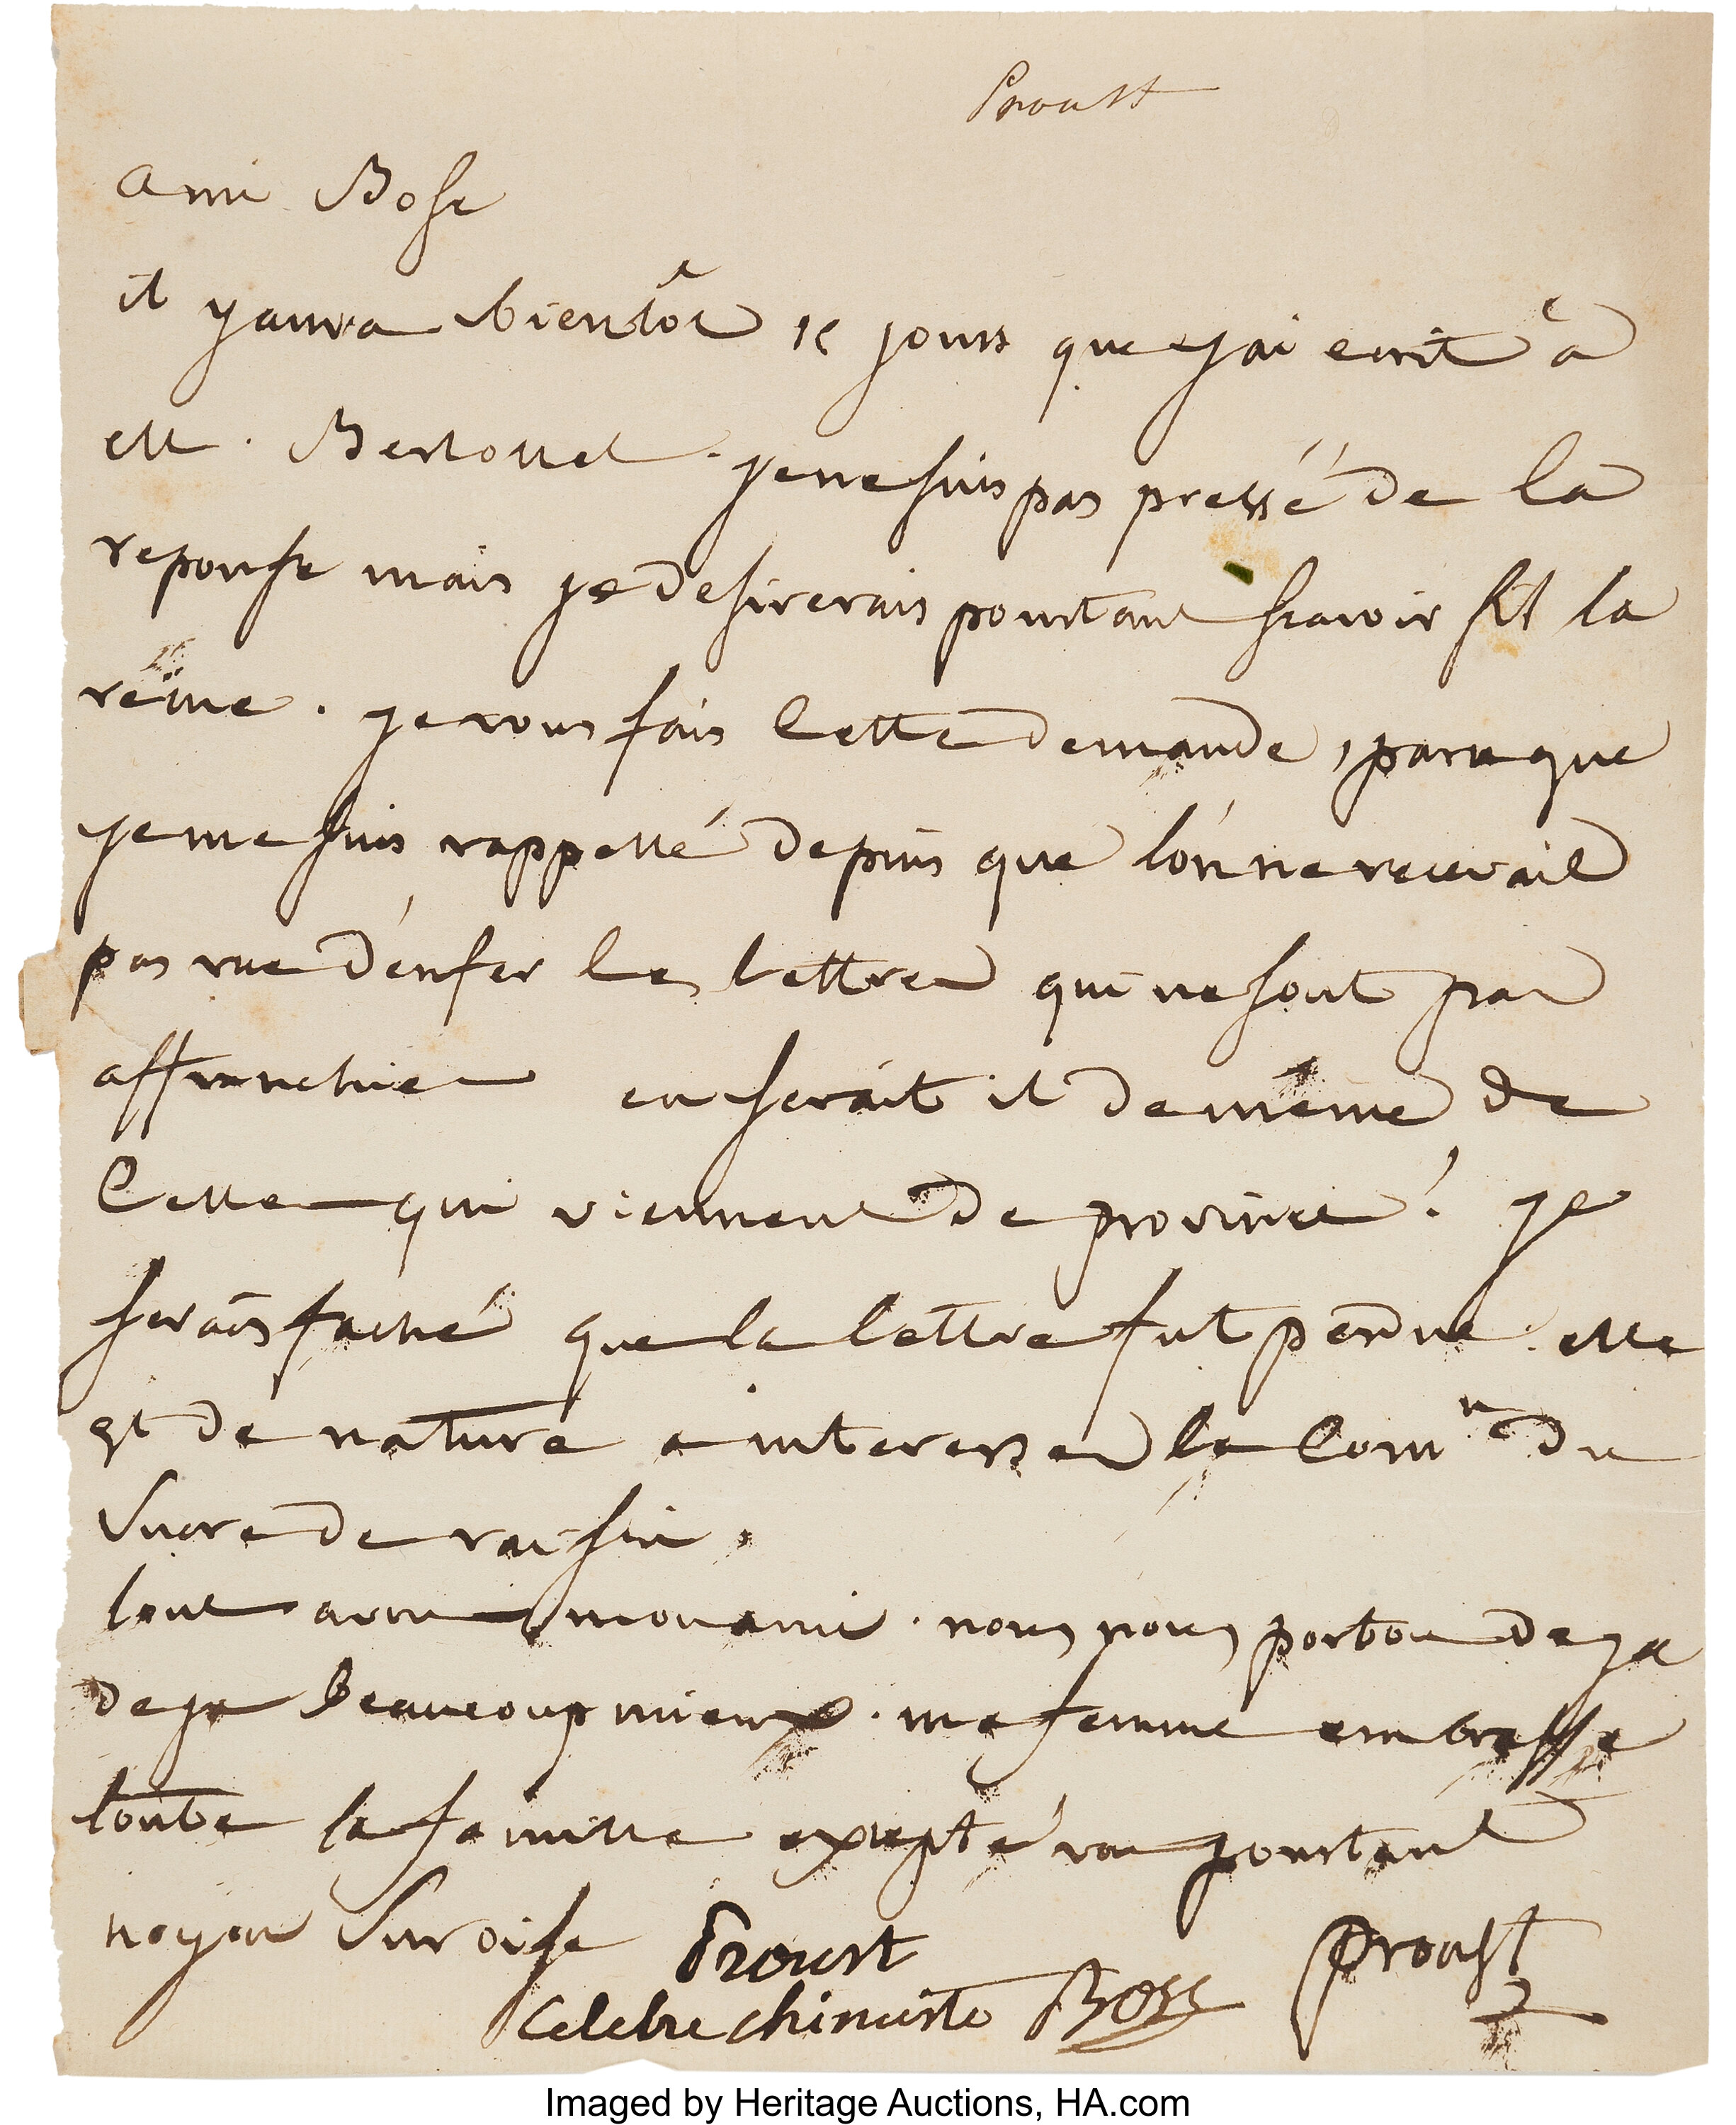 Proust
ami Bosc
il y aura bientôt jours que j'ai ecrit à
M. Bertollet. je ne suis pas pressé de la
reponse mais je desirerais pourtant scavoir s'il la
. je vous fais cette demande, parceque
je me suis rappellé depuis que l'on ne recevait
pas rue d'enfer les lettres qui ne sont pas
affranchies en serait il de même de
celles qui viennent de province! je
serais faché que la lettre fut perdue. elle
est de nature a interesser la Comne du
sucre de raisin.
tout avous mon ami. nous nous portons deja
deja beaucoup mieux. ma femme embrasse
toute la famille excepté vous pourtant
noyon sur oise Proust Proust
celebre chimiste Bosc
Imaged by Heritage Auctions, HA.com